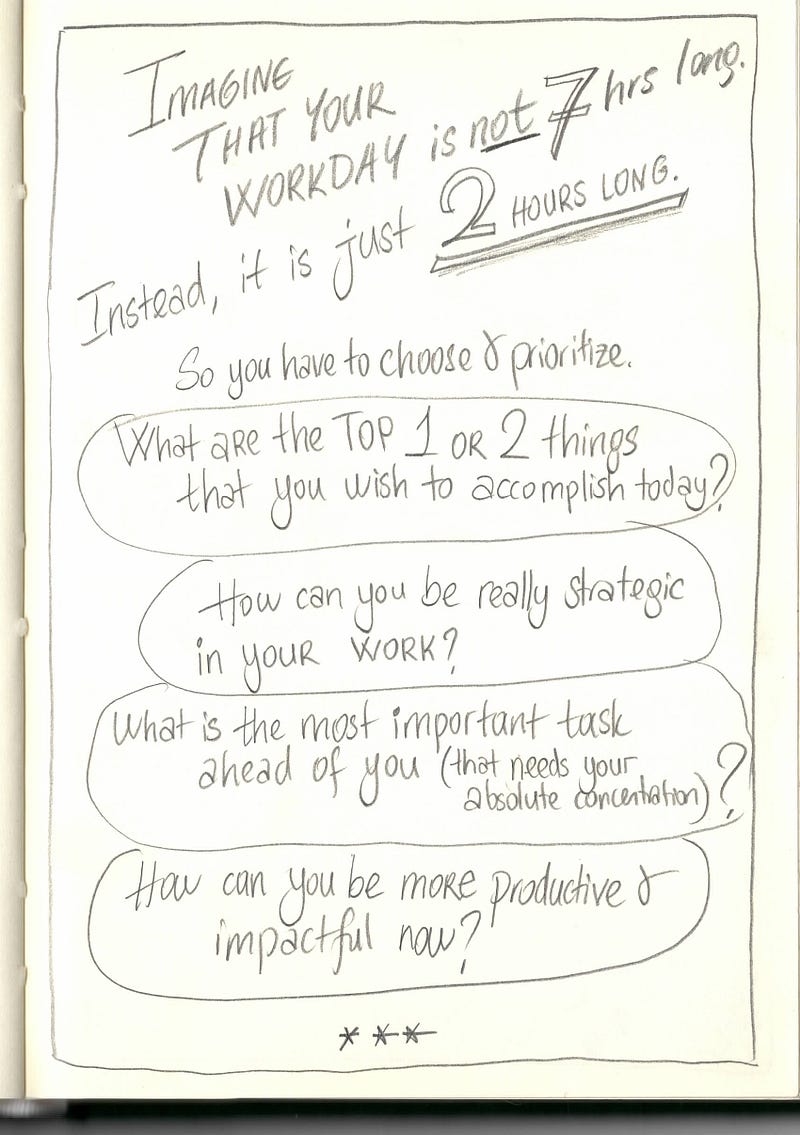 IMAGINE
THAT YOUR
WORKDAY is not 7 hrs long.
Instead, it is just 2 HOURS LONG.
So you have to choose & prioritize.
What are the TOP 1 OR 2 things
that you wish to accomplish today?
How can you be really strategic
in your WORK?
What is the most important task
ahead of you (that needs your
absolute concentration)?
How can you be more productive &
impactful now?
***